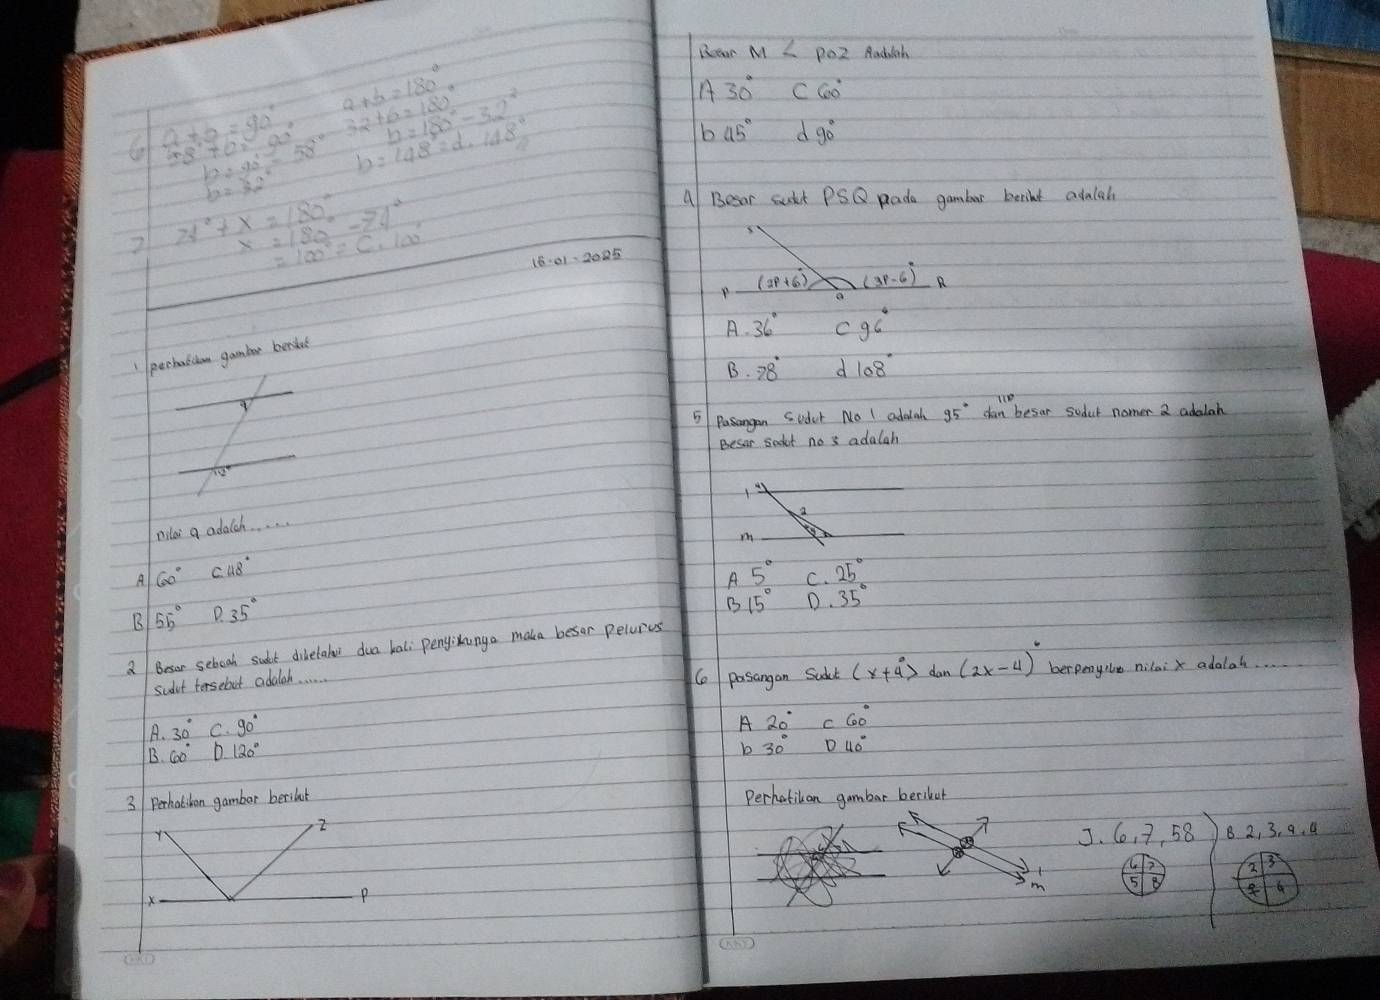 6 a + b = 90°
58° + b = 90°
b = 90° - 58°
b = 32°
a + b = 180°
32 + b = 180°
b = 180° - 32°
b = 148° = d. 148°
7 x = 180°
x = 180
= 100° = C. 100°
16-01-2025
1 perhatikan gambar berikut
q
nilai q adalah.....
A 60° C. 48°
B 55° D. 35°
2 Besar sebuah sudut diketahui dua kali penyikunya maka besar pelurus
sudut tersebut adalah.....
A. 30° C. 90°
B. 60° D. 120°
3 Perhatikan gambar berikut
Y Z
X P
Besar M < POZ Adalah
A 30° C 60°
b 45° d 90°
4 Besar sudut PSQ pada gambar berikut adalah
S
P (2P+6)° (3P-6)° R
Q
A. 36° C 96°
B. 78° d 108°
5 Pasangan sudut No 1 adalah 95° dan 110° besar sudut nomer 2 adalah
Besar sudut no 3 adalah
1
2
m
A 5° C. 25°
B 15° D. 35°
6 pasangan sudut (x+4°) dan (2x-4)° berpenyiku nilai x adalah.....
A 20° C 60°
b 30° D 40°
Perhatikan gambar berikut
m
J. 6, 7, 58
6 7
5 8
B 2, 3, 9, 4
2 3
4